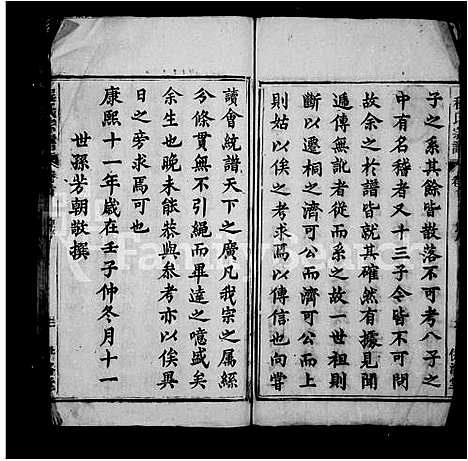 子之系其餘皆散落不可考八子之
中有名稽者又十三子今皆不可閱
故余之於譜皆就其確然有據見聞
遞傳無訛者從而系之故一世祖則
斷以遷桐之濟可公而濟可公而上
則姑以俟之考求焉以傳信也向嘗
讀會統譜天下之廣凡我宗之屬縣
分條貫無不引繩而畢達之噫盛矣
余生也晚未能恭與參考亦以俟異
日之旁求焉可也
康熙十一年歲在壬子仲冬月十一
世孫芳朝敬撰
FamilySearch